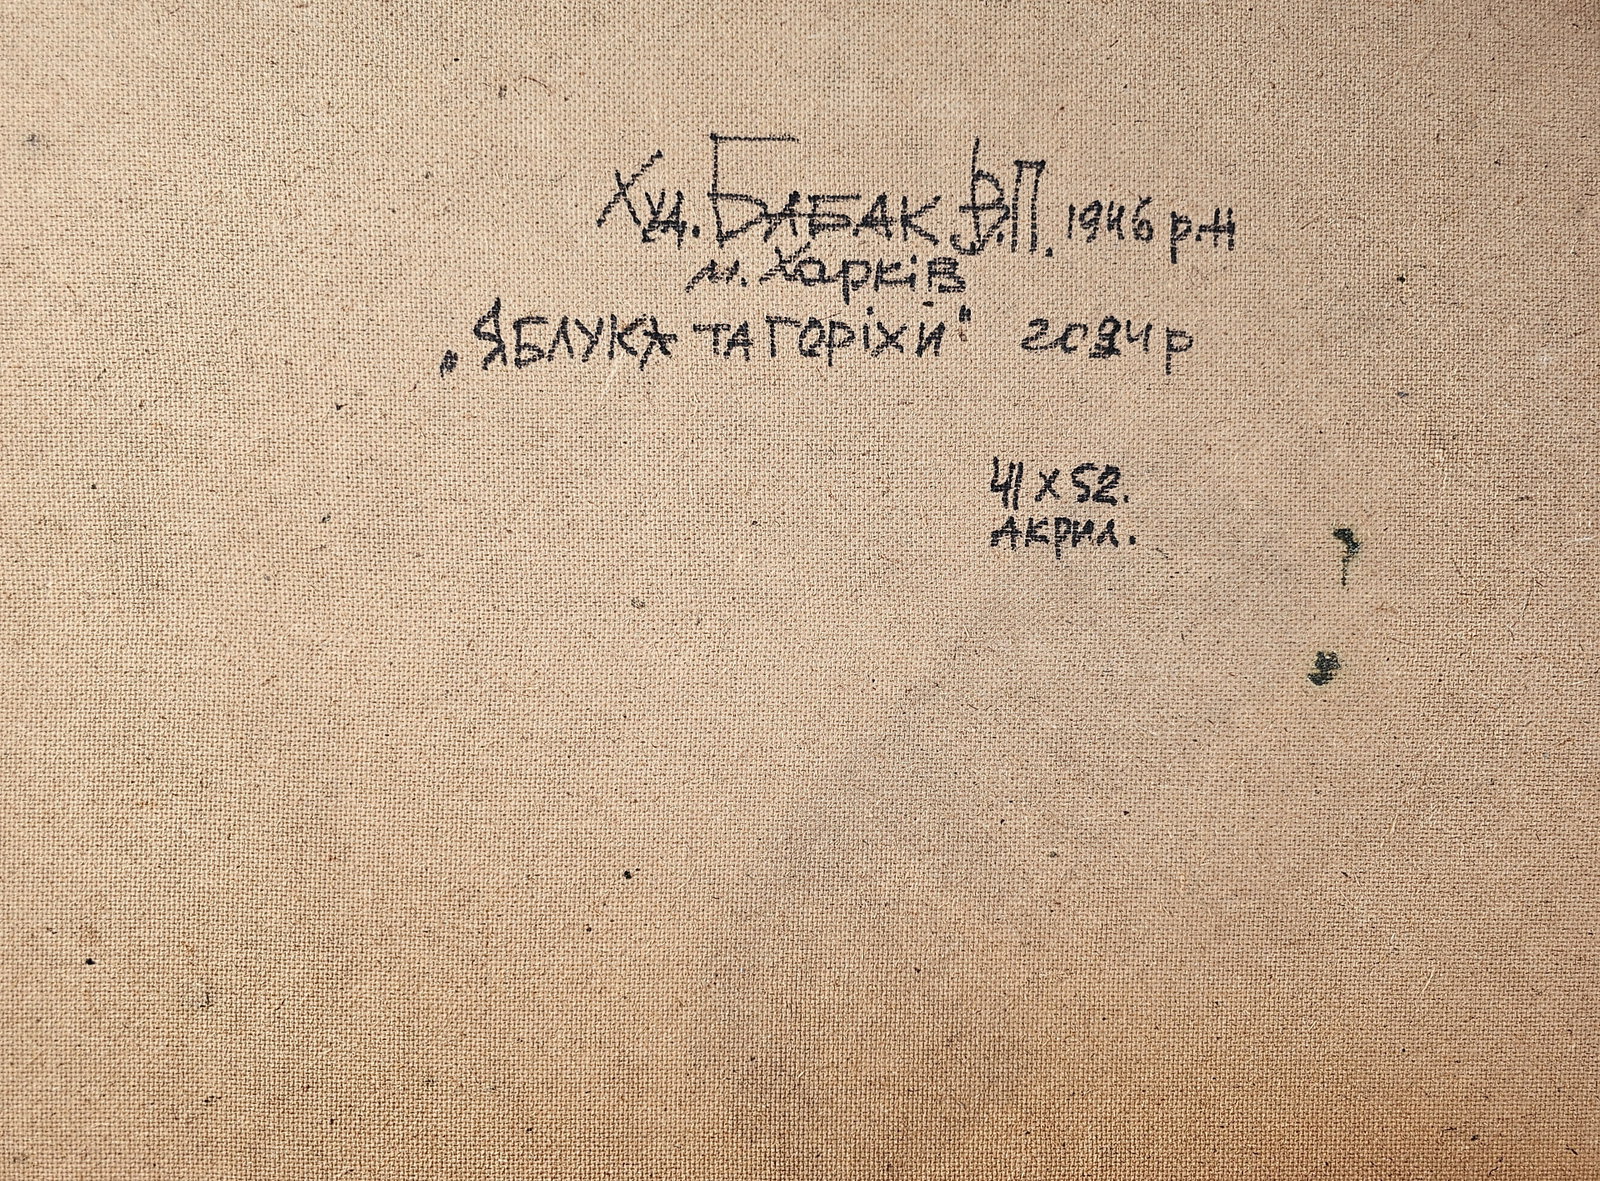 Худ. БАБАК В.П. 1946 р.н
м. Харків
„ЯБЛУКА ТА ГОРІХИ" 2024 р
41 х 52.
Акрил.